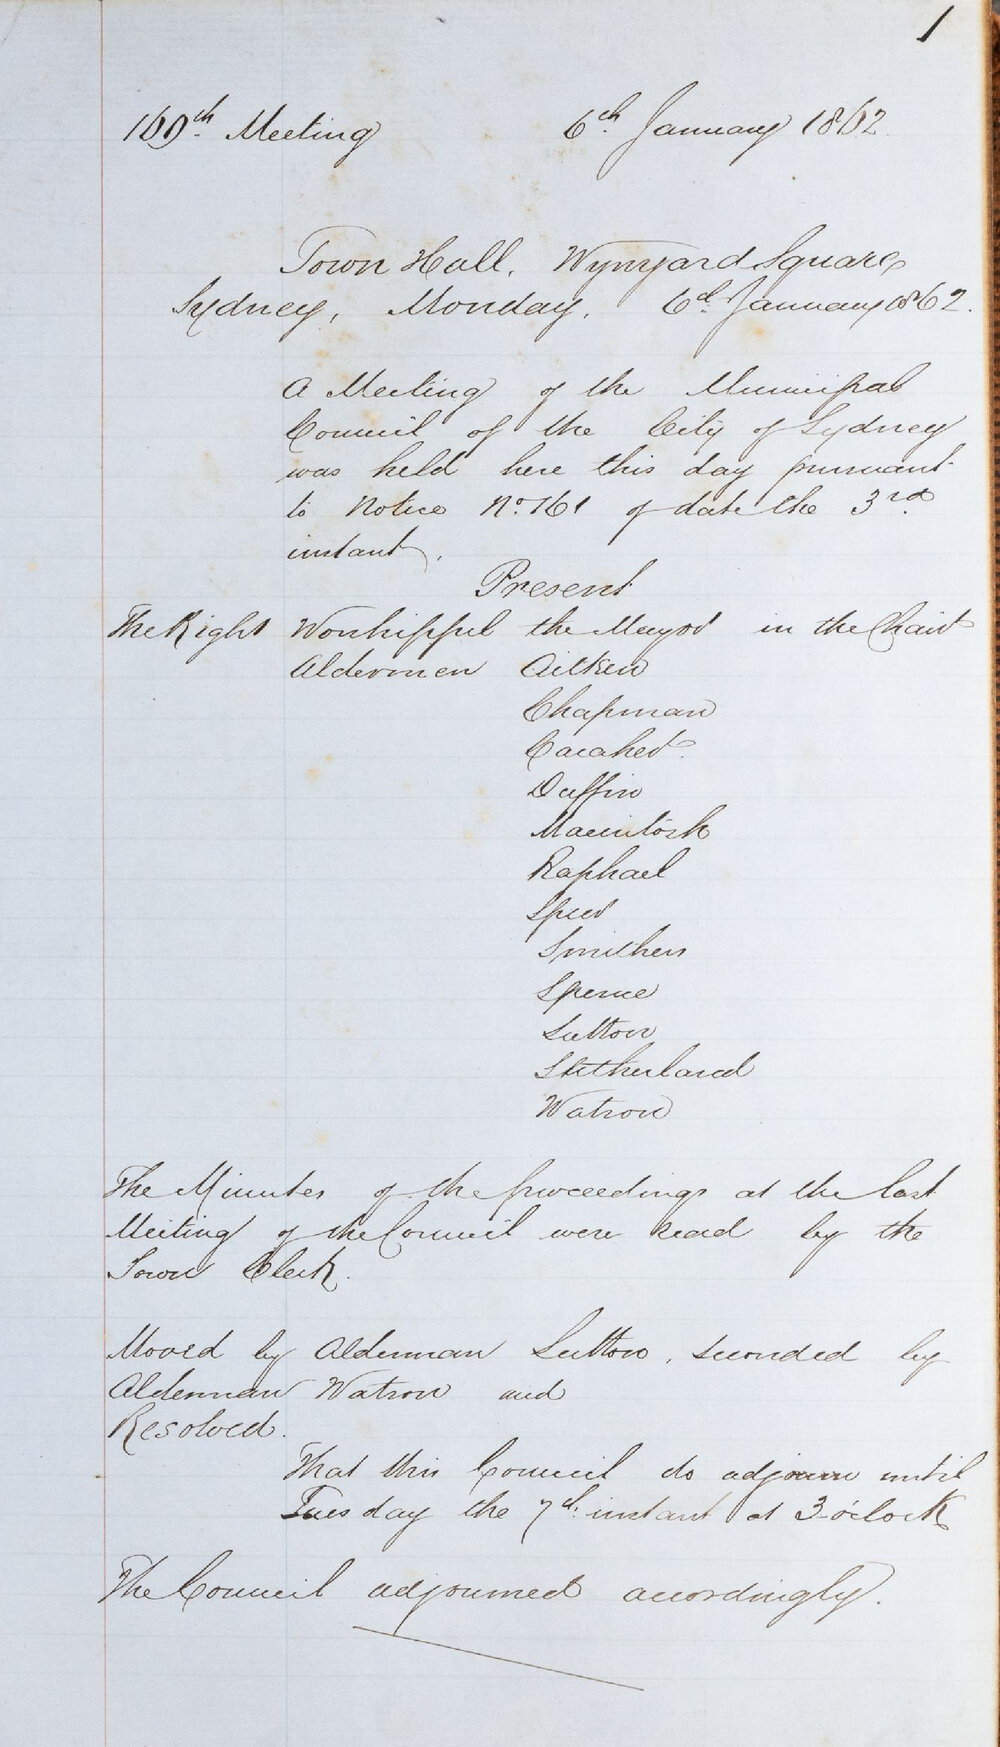 1
160th Meeting 6th January 1862.
Town Hall, Wynyard Square
Sydney, Monday, 6th January 1862.
A Meeting of the Municipal
Council of the City of Sydney
was held here this day pursuant
to Notice No. 161 of date the 3rd
instant.
Present
The Right Worshipful the Mayor in the Chair
Aldermen Aitken
Chapman
Caraher
Duffin
Macintosh
Raphael
Speer
Smithers
Spence
Sutton
Sutherland
Watson
The Minutes of the proceedings at the last
Meeting of the Council were read by the
Town Clerk.
Moved by Alderman Sutton, seconded by
Alderman Watson and
Resolved.
That this Council do adjourn until
Tuesday the 7th instant at 3 o'clock
The Council adjourned accordingly.